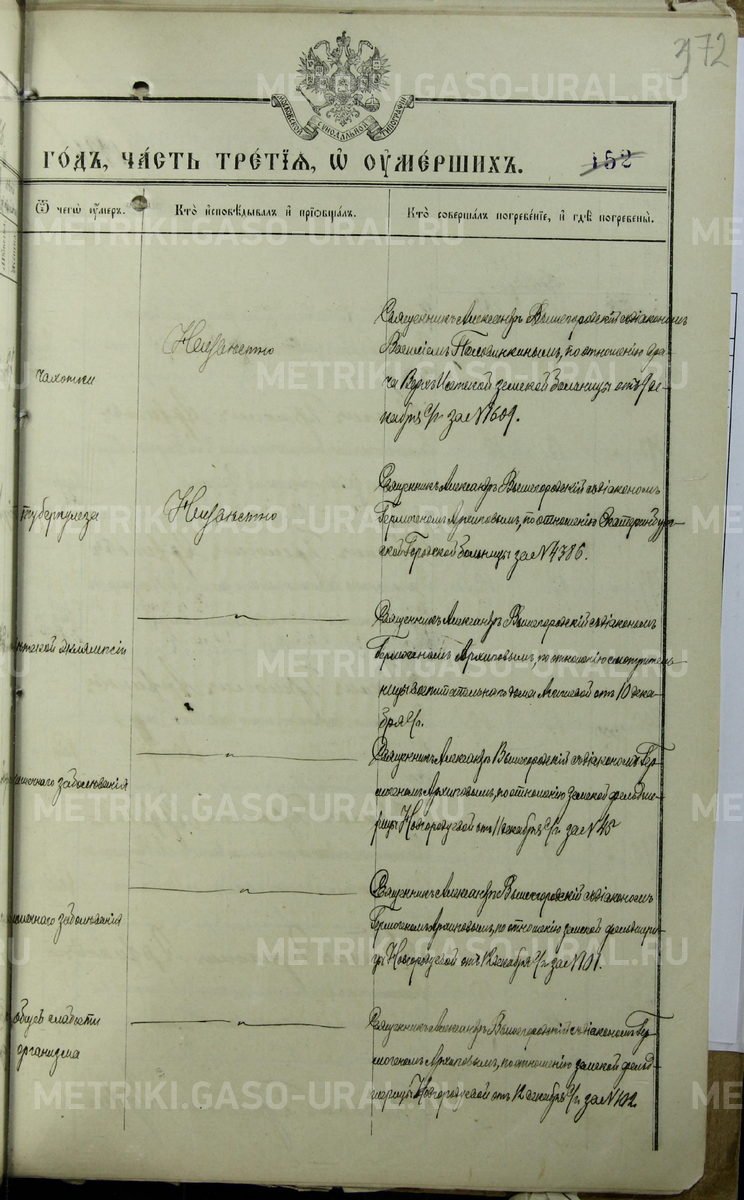 372
МОСКОВСКОЙ СѴНОДАЛЬНОЙ ТИПОГРАФІИ
ГО́ДЪ, ЧА́СТЬ ТРЕ́ТІѦ, Ѡ҆ ОУ҆МЕ́РШИХЪ.
152
Ѿ чегѡ̀ ᲂу҆́меръ.
Кто̀ и҆сповѣ́дывалъ и҆ прїѡбща́лъ.
Кто̀ соверша́лъ погребе́нїе, и҆ гдѣ̀ погребены̀.
чахотки
Неизвѣстно
Священникъ Александръ Вышегородскій съ діакономъ
Василіемъ, по отношенію вра-
ча Верхъ Исетской земской больницы отъ 9 де-
кабря с/г за № 1609.
туберкулеза
Неизвѣстно
Священникъ Александръ Вышегородскій съ діакономъ
Гермогеномъ Архиповымъ, по отношенію Екатеринбург-
ской Городской больницы за № 4386.
эклямпсіи
— " —
Священникъ Александръ Вышегородскій съ діакономъ
Гермогеномъ Архиповымъ, по отношенію смотритель-
ницы воспитательнаго дома отъ 10 дека-
бря с/г.
заболѣванія
— " —
Священникъ Александръ Вышегородскій съ діакономъ Гер-
могеномъ Архиповымъ, по отношенію земской фельдше-
рицы отъ 11 декабря с/г за № 45
заболѣванія
— " —
Священникъ Александръ Вышегородскій съ діакономъ
Гермогеномъ Архиповымъ, по отношенію земской фельдшери-
цы отъ 12 декабря с/г за № 101.
общей слабости
организма
— " —
Священникъ Александръ Вышегородскій съ діакономъ Гер-
могеномъ Архиповымъ, по отношенію земской фельд-
шерицы отъ 12 декабря с/г за № 102.
METRIKI.GASO-URAL.RU